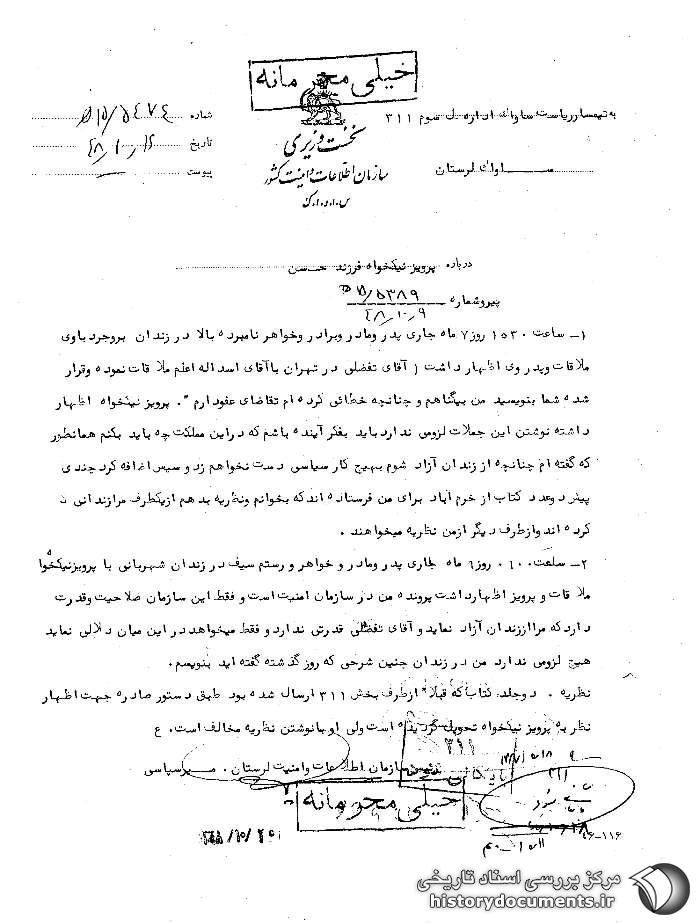 خیلی محرمانه
به تیمسار ریاست ساواک اداره کل سوم ۳۱۱
نخست وزیری
سازمان اطلاعات و امنیت کشور
س.ا.و.ا.ک
شماره
تاریخ
پیوست
ساواک لرستان
درباره پرویز نیکخواه فرزند حسن
پیرو شماره ۵۳۸۹/
۴۸/۱۰/۹
۱ــ ساعت ۱۵۳۰ روز ۷ ماه جاری پدر و مادر و برادر و خواهر نامبرده بالا در زندان بروجرد باوی
ملاقات و پدر وی اظهار داشت ( آقای تفضلی در تهران با آقای اسداله اعلم ملاقات نموده و قرار
شده شما بنویسید من بیگناهم و چنانچه خطائی کرده ام تقاضای عفو دارم ". پرویز نیکخواه اظهار
داشته نوشتن این جملات لزومی ندارد باید بفکر آینده باشم که در این مملکت چه باید بکنم همانطور
که گفته ام چنانچه از زندان آزاد شوم بهیچ کار سیاسی دست نخواهم زد و سپس اضافه کرد چندی
پیش دو عدد کتاب از خرم آباد برای من فرستاده اند که بخوانم و نظریه بدهم از یکطرف مرا زندانی
کرده اند و از طرف دیگر از من نظریه میخواهند .
۲ــ ساعت روز ماه جاری پدر و مادر و خواهر و رستم سیف در زندان شهربانی با پرویز نیکخواه
ملاقات و پرویز اظهار داشت پرونده من در سازمان امنیت است و فقط این سازمان صلاحیت و قدرت
دارد که مرا از زندان آزاد نماید و آقای تفضلی قدرتی ندارد و فقط میخواهد در این میان دلالی نماید
هیچ لزومی ندارد من در زندان چنین شرحی که روز گذشته گفته اید بنویسم .
نظریه . دو جلد کتاب که قبلا" از طرف بخش ۳۱۱ ارسال شده بود طبق دستور صادره جهت اظهار
نظر به پرویز نیکخواه تحویل گردیده است ولی او با نوشتن نظریه مخالف است . ع
۳۱۱
بایگانی
رئیس سازمان اطلاعات و امنیت لرستان .
خیلی محرمانه
۴۶-۱۱۶
مرکز بررسی اسناد تاریخی
historydocuments.ir